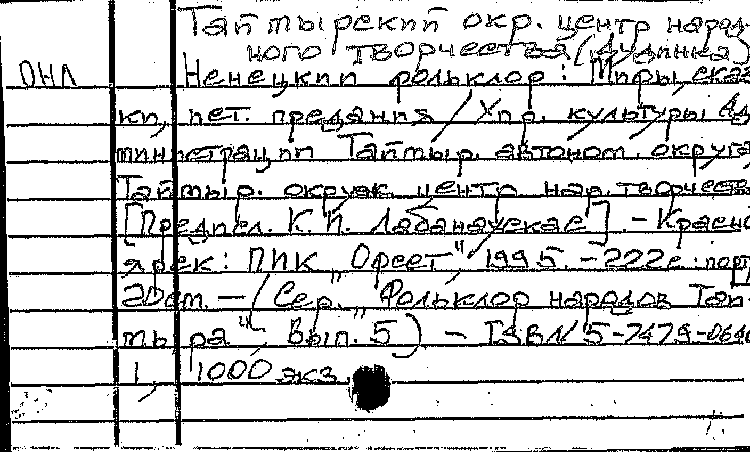 Таймырский окр. центр народ-
ного творчества (Дудинка)
ОНЛ Ненецкий фольклор: Мифы, сказ
ки, ист. предания / Упр. культуры Ад
министрации Таймыр. автоном. округа,
Таймыр. окруж. центр нар. творчеств
[Предисл. К. И. Лабанаускас] - Красно
ярск: ПИК „Офсет", 1995. - 222с.: порт
20см. - (Сер. „Фольклор народов Тай-
мыра", Вып. 5) - ISBN 5-7479-0640
1, 1000 экз.